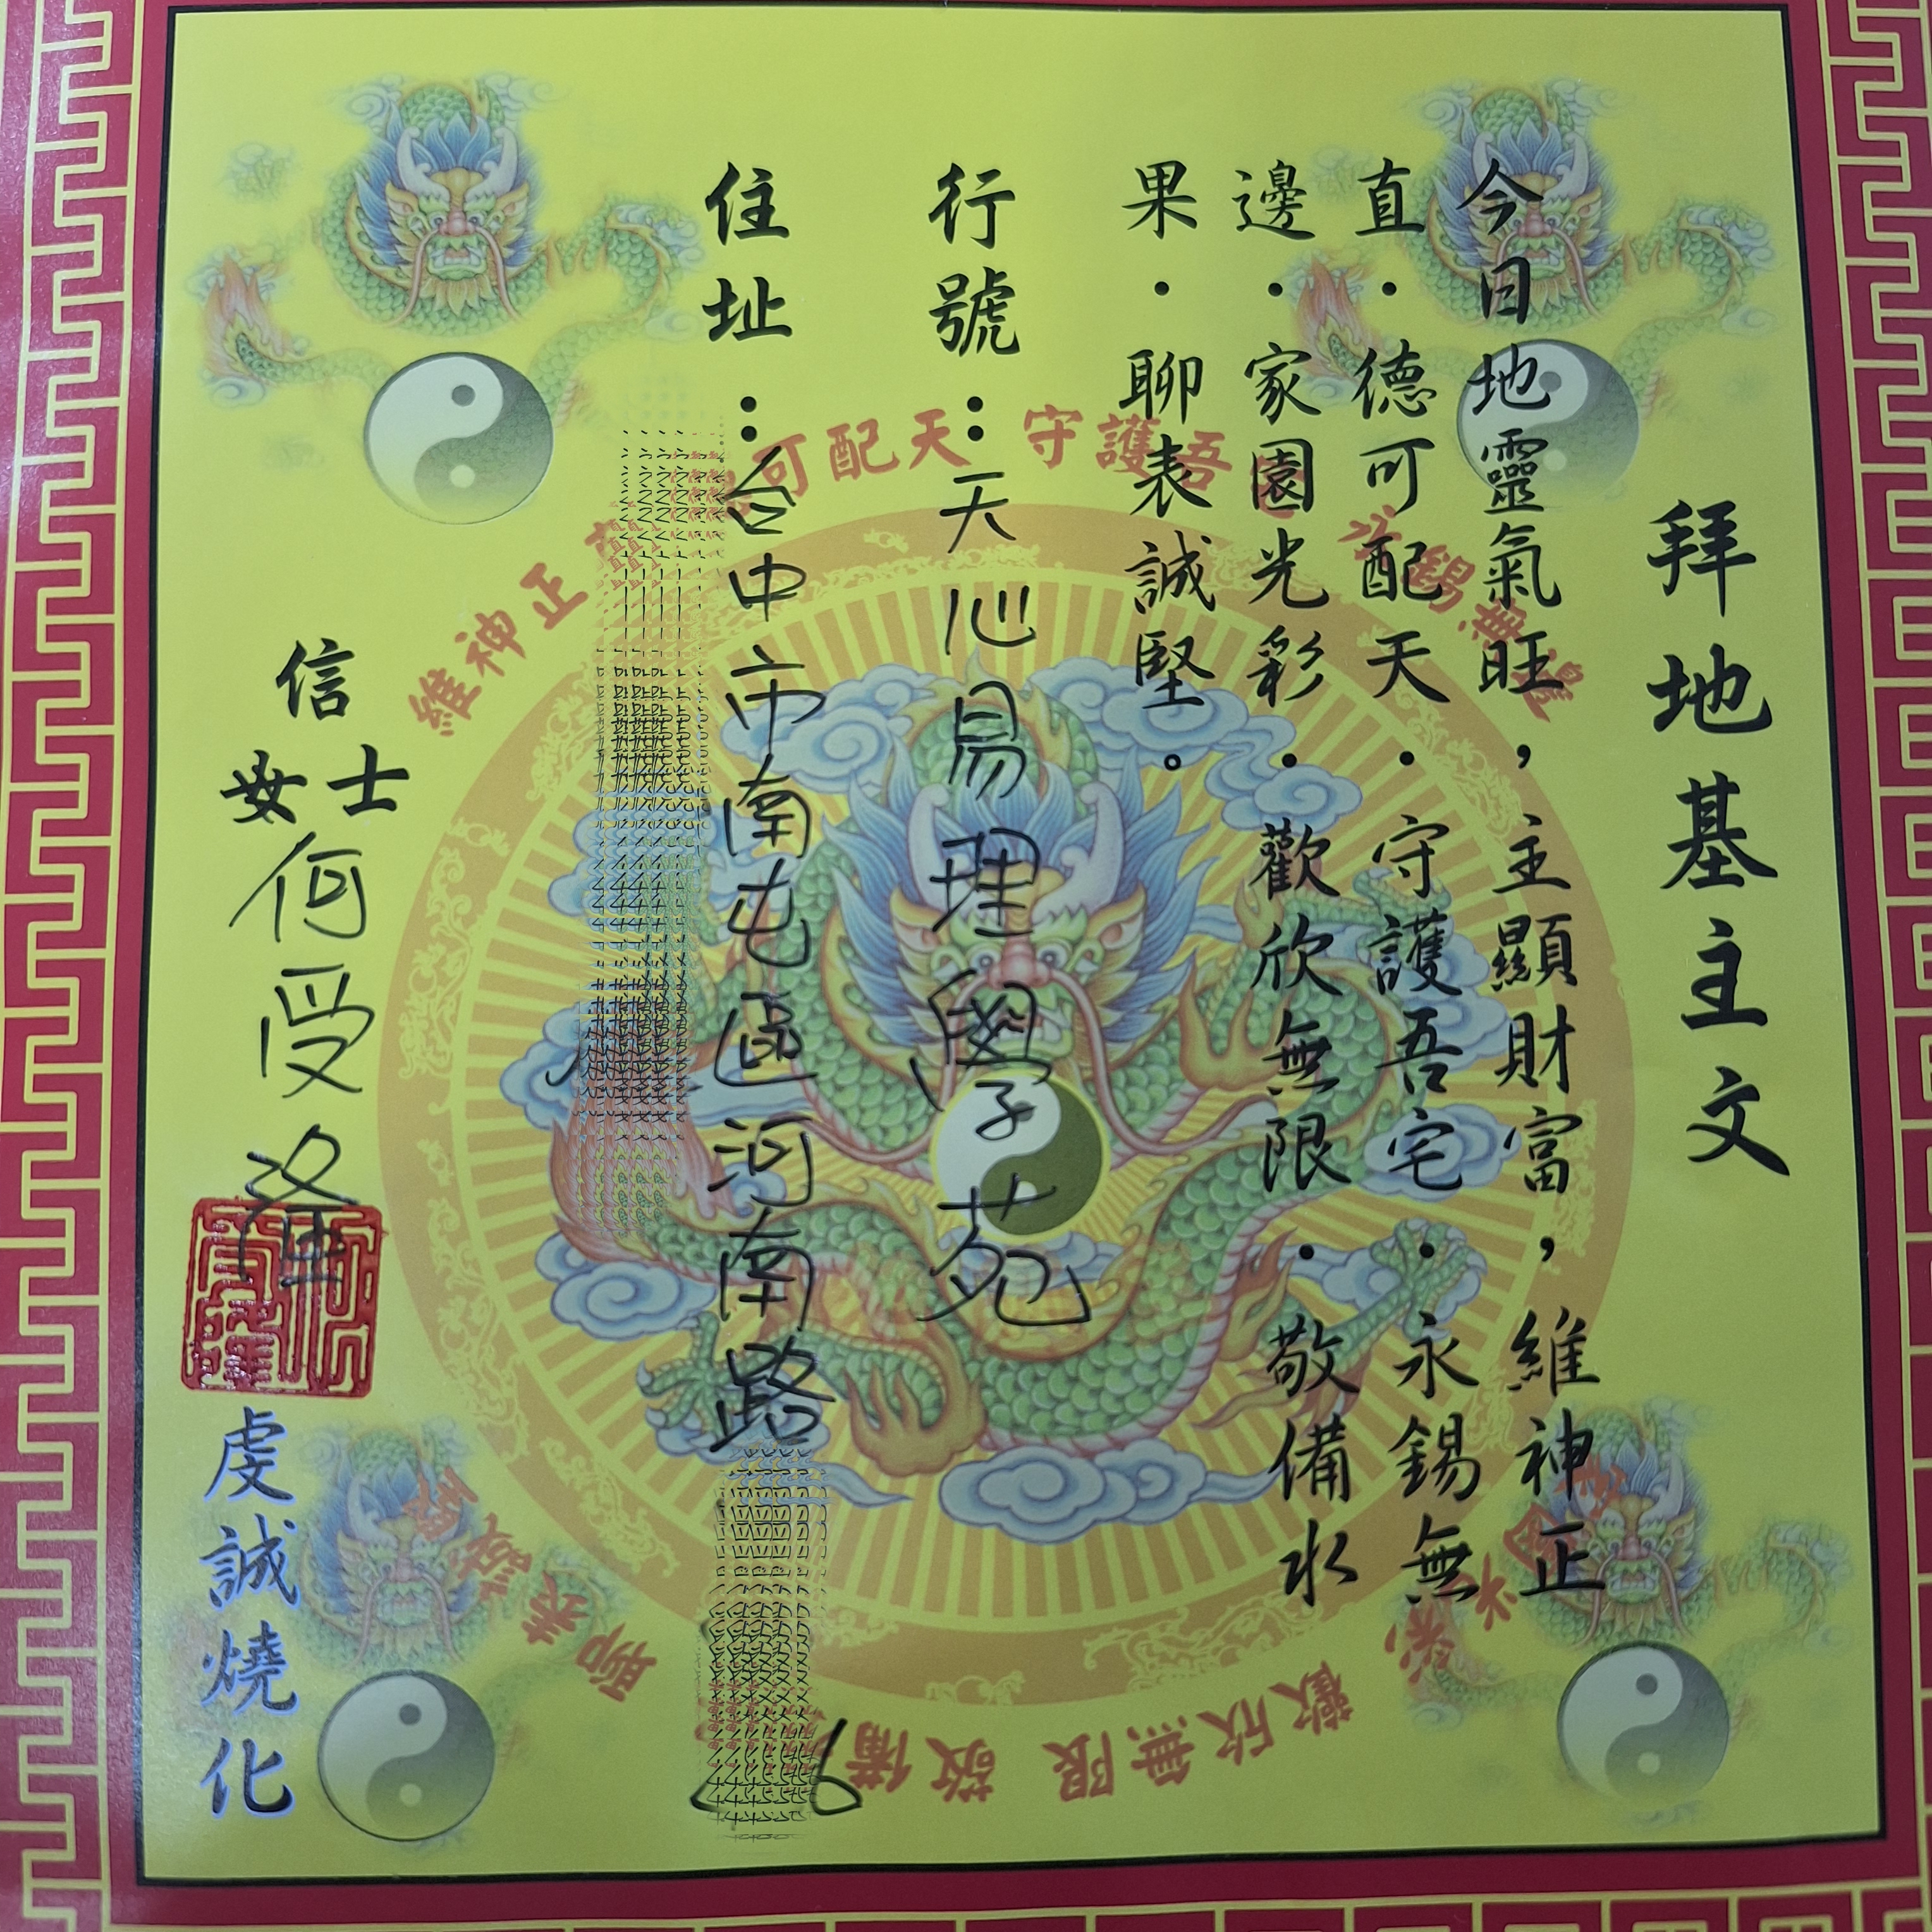 拜地基主文
今日地靈氣旺，主顯財富，維神正
直．德可配天．守護吾宅．永錫無
邊．家園光彩．歡欣無限．敬備水
果．聊表誠堅。
行號：天心易理學苑
住址：台中市南屯區河南路
信士
女
何受隆
虔誠燒化
維神正直 可配天 守護吾 永錫無邊
歡欣無限 敬備
聊表誠堅